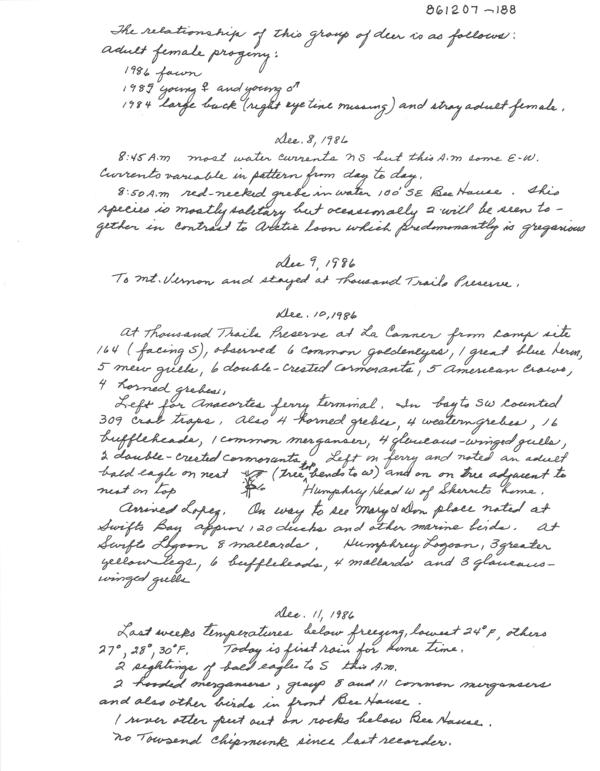 861207-188
The relationship of this group of deer is as follows:
adult female progeny:
1986 fawn
1985 young ♀ and young ♂
1984 large buck (right eye tine missing) and stray adult female.
Dec. 8, 1986
8:45 A.m most water currents NS but this A.m some E-W.
Currents variable in pattern from day to day.
8:50 A.m red-necked grebe in water 100' SE Bee House. This
species is mostly solitary but occasionally 2 will be seen to-
gether in contrast to Arctic loon which predominantly is gregarious
Dec 9, 1986
To Mt. Vernon and stayed at Thousand Trails Preserve.
Dec. 10, 1986
At Thousand Trails Preserve at La Conner from camp site
164 (facing S), observed 6 common goldeneyes, 1 great blue heron,
5 mew gulls, 6 double-crested cormorants, 5 American crows,
4 horned grebes.
Left for Anacortes ferry terminal. In bay to SW counted
309 crab traps. Also 4 horned grebes, 4 western grebes, 16
buffleheads, 1 common merganser, 4 glaucous-winged gulls,
2 double-crested cormorants. Left on ferry and noted an adult
bald eagle on nest (tree top bends to W) and on on tree adjacent to
nest on top Humphrey Head W of Sherrits home.
Arrived Lopez. On way to see Mary & Don place noted at
Swifts Bay approx 120 ducks and other marine birds. At
Swifts Lagoon 8 mallards. Humphrey Lagoon, 3 greater
yellow-legs, 6 buffleheads, 4 mallards and 3 glaucous-
winged gulls
Dec. 11, 1986
Last weeks temperatures below freezing, lowest 24°F, others
27°, 28°, 30°F. Today is first rain for some time.
2 sightings of bald eagles to S this A.m.
2 hooded mergansers, group 8 and 11 common mergansers
and also other birds in front Bee House.
1 river otter put out on rocks below Bee House.
No Towsend chipmunk since last recorder.